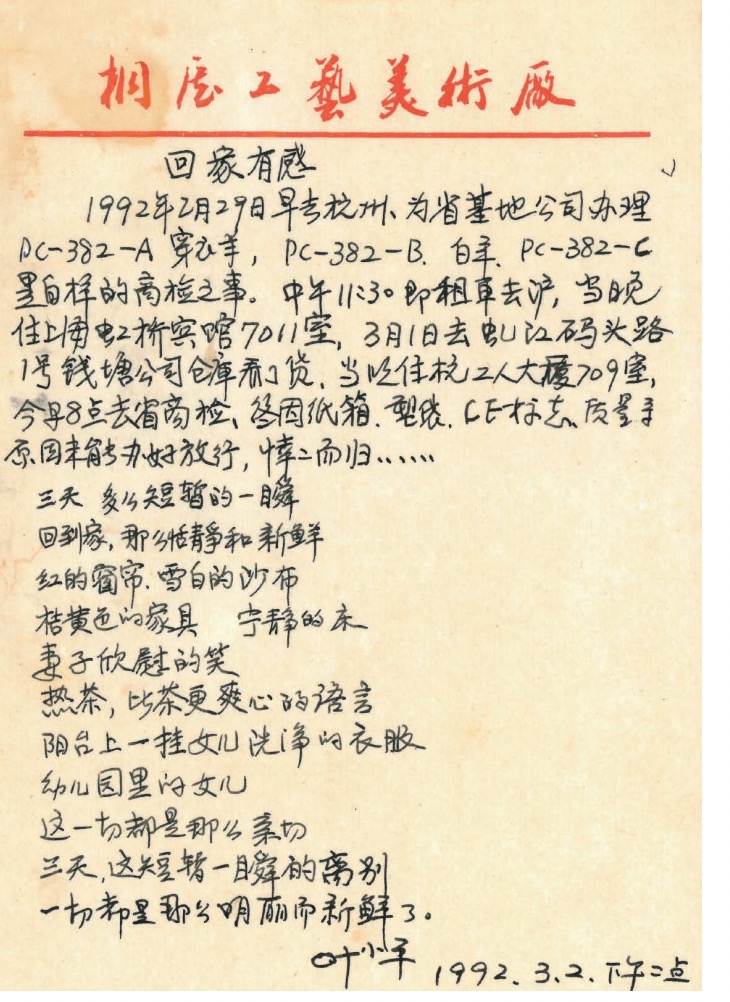 桐庐工艺美術厰
回家有感
1992年2月29日早去杭州、为省基地公司办理
PC-382-A 穿衣羊, PC-382-B. 白羊. PC-382-C
黑白样的商检之事。中午11:30即租車去沪, 当晚
住上海虹桥宾馆7011室, 3月1日去虬江码头路
1号钱塘公司仓库看了货. 当晚住杭工人大廈709室,
今早8点去省商检、终因纸箱. 塑袋. CE标志、质量等
原因未能办好放行, 悻々而归……
三天 多么短暂的一瞬
回到家, 那么恬静和新鲜
红的窗帘. 雪白的沙布
桔黄色的家具 宁静的床
妻子欣慰的笑
热茶, 比茶更爽心的语言
阳台上一挂女儿洗净的衣服
幼儿园里的女儿
这一切都是那么亲切
三天, 这短暂一瞬的离别
一切都是那么明丽而新鲜了。
叶小平
1992.3.2.下午二点